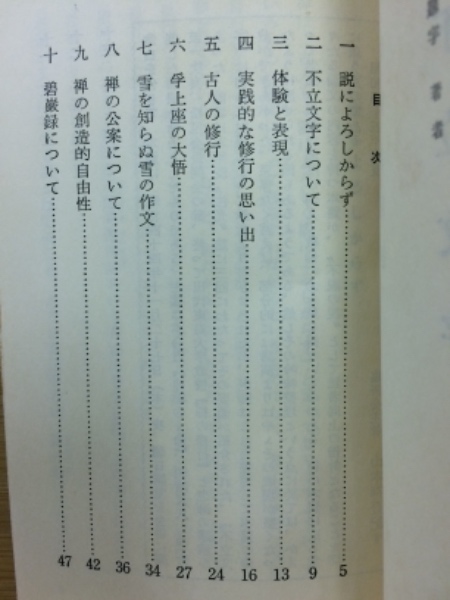 目次
一 説によろしからず 5
二 不立文字について 9
三 体験と表現 13
四 実践的な修行の思い出 16
五 古人の修行 24
六 孚上座の大悟 27
七 雪を知らぬ雪の作文 34
八 禅の公案について 36
九 禅の創造的自由性 42
十 碧巌録について 47